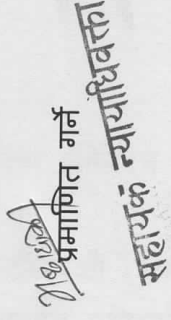 प्रमाणित गर्ने
सहायक न्यायाधिवक्ता